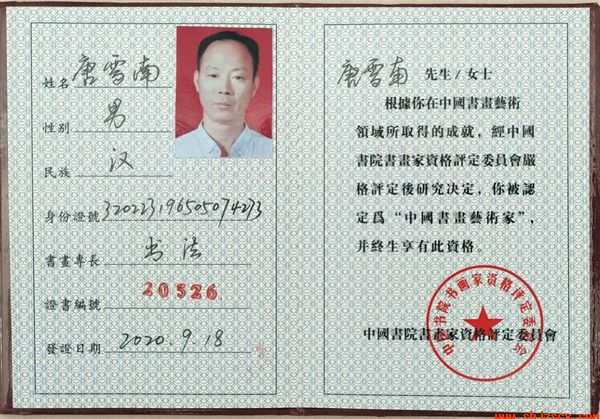 姓名 唐雪南
性别 男
民族 汉
身份證號 320223196505074273
書畫專長 书法
證書編號 20526
發證日期 2020.9.18
唐雪南 先生/女士
根據你在中國書畫藝術
領域所取得的成就，經中國
書院書畫家資格評定委員會嚴
格評定後研究决定，你被認
定爲“中國書畫藝術家”，
并終生享有此資格。
中國書院書畫家資格評定委員會
中国书院书画家资格评定委员会